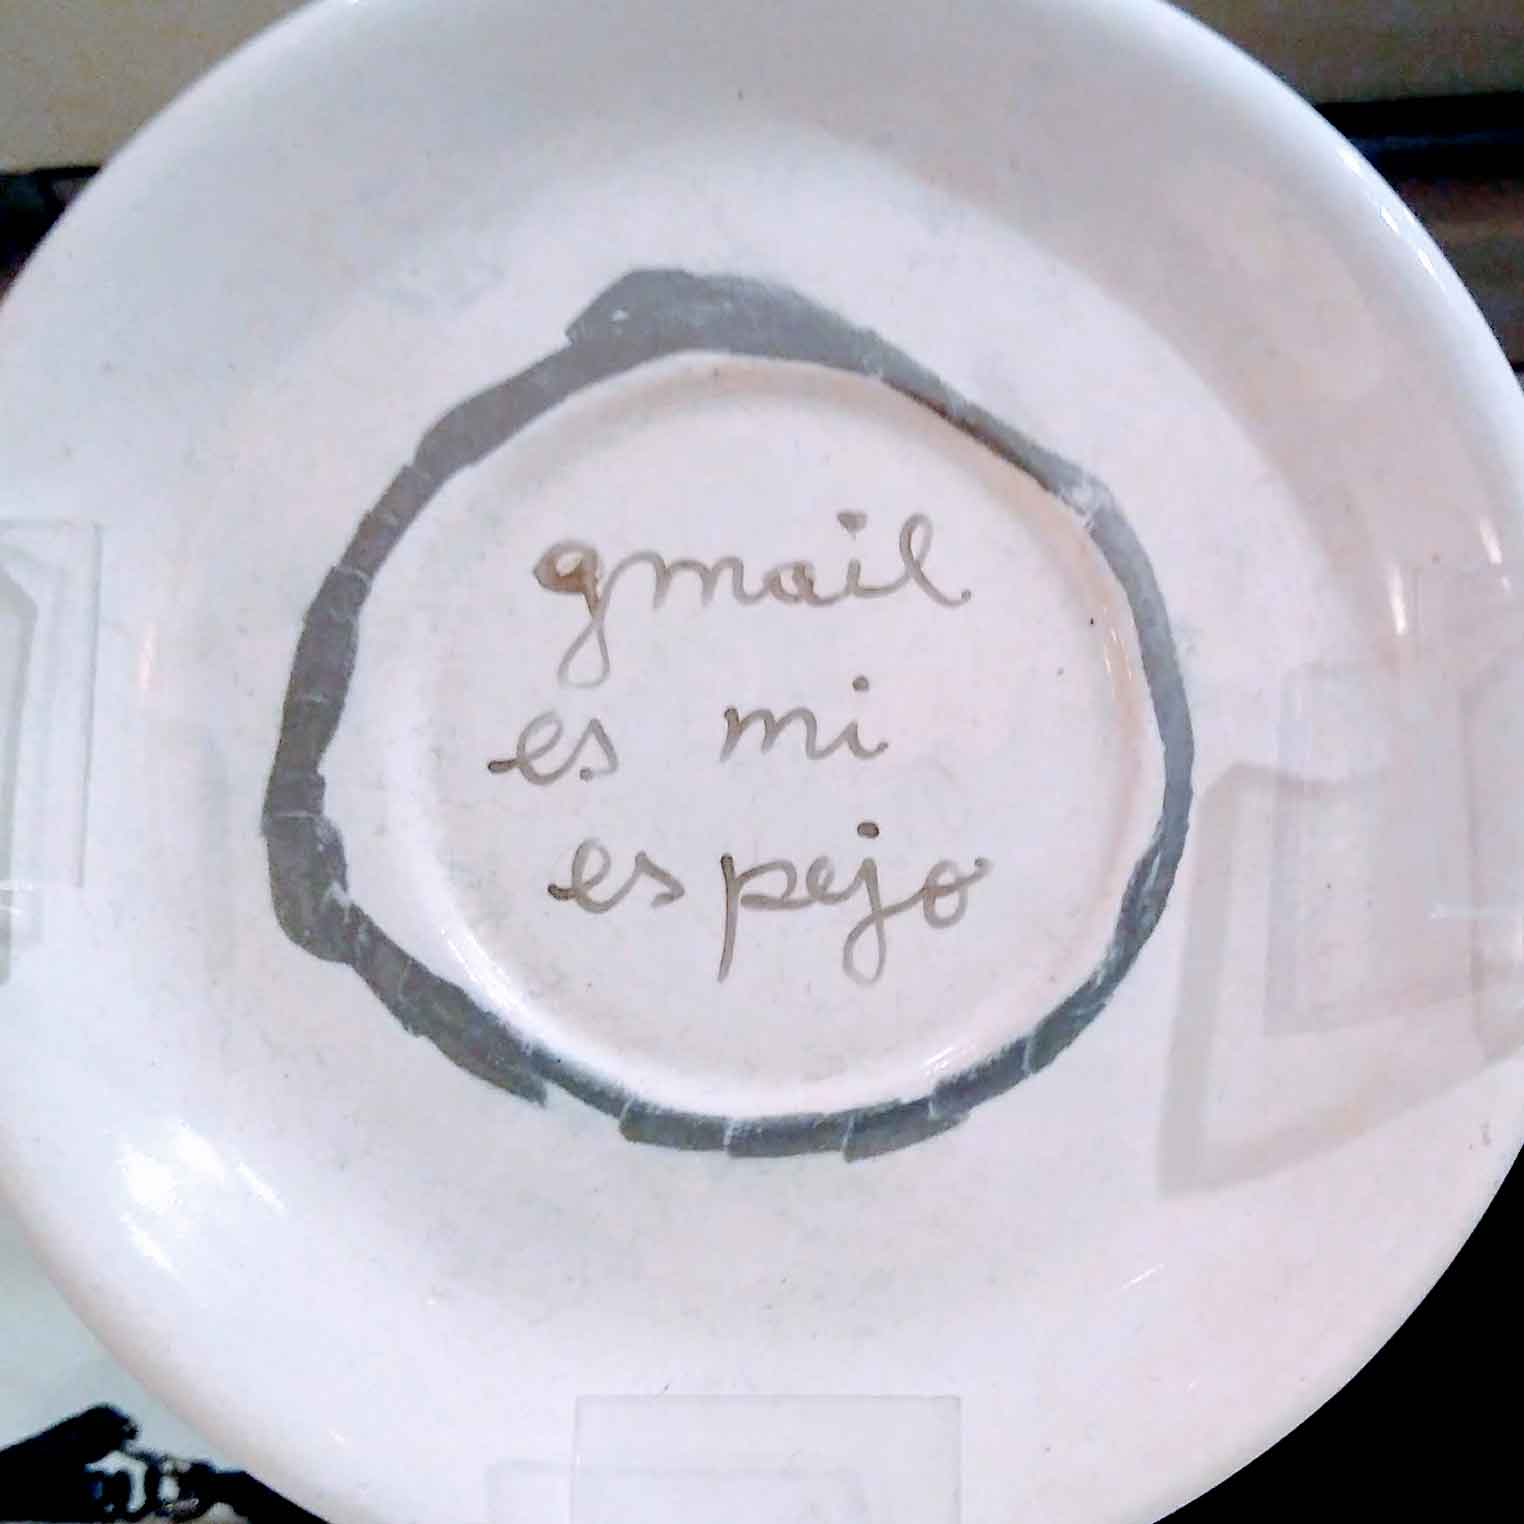 gmail
es mi
espejo